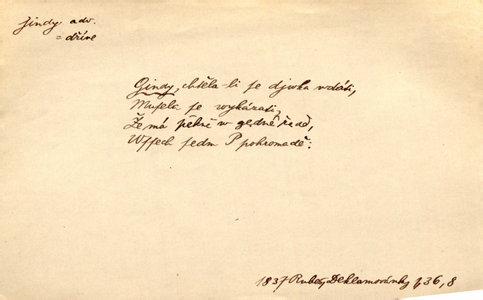 jindy adv.
= dříve
Gindy, chtěla-li se djwka wdáti,
Musela se wykázati,
Že má pěkně w gedné řadě,
Wssech sedm P pohromadě:
1837 Rubeš, Deklamovánky 1, 36, 8